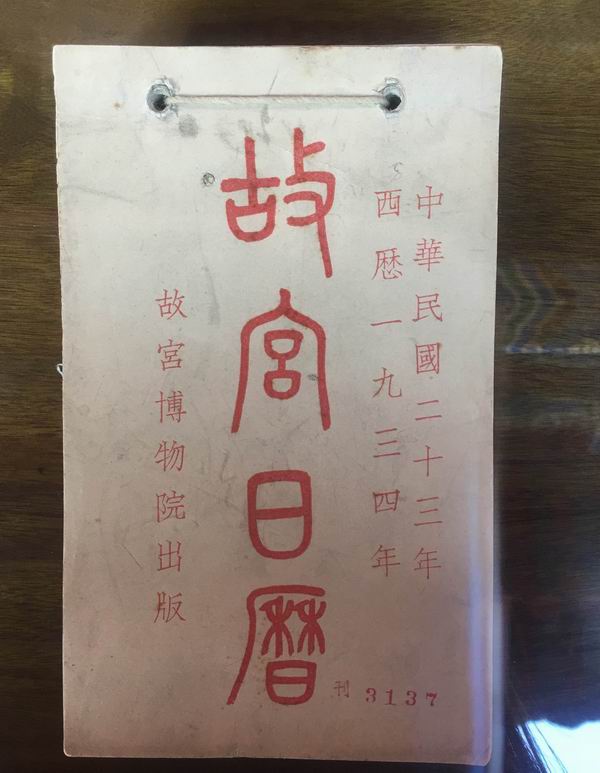 中華民國二十三年
西歷一九三四年
故宮日曆
故宮博物院出版
刊 3137